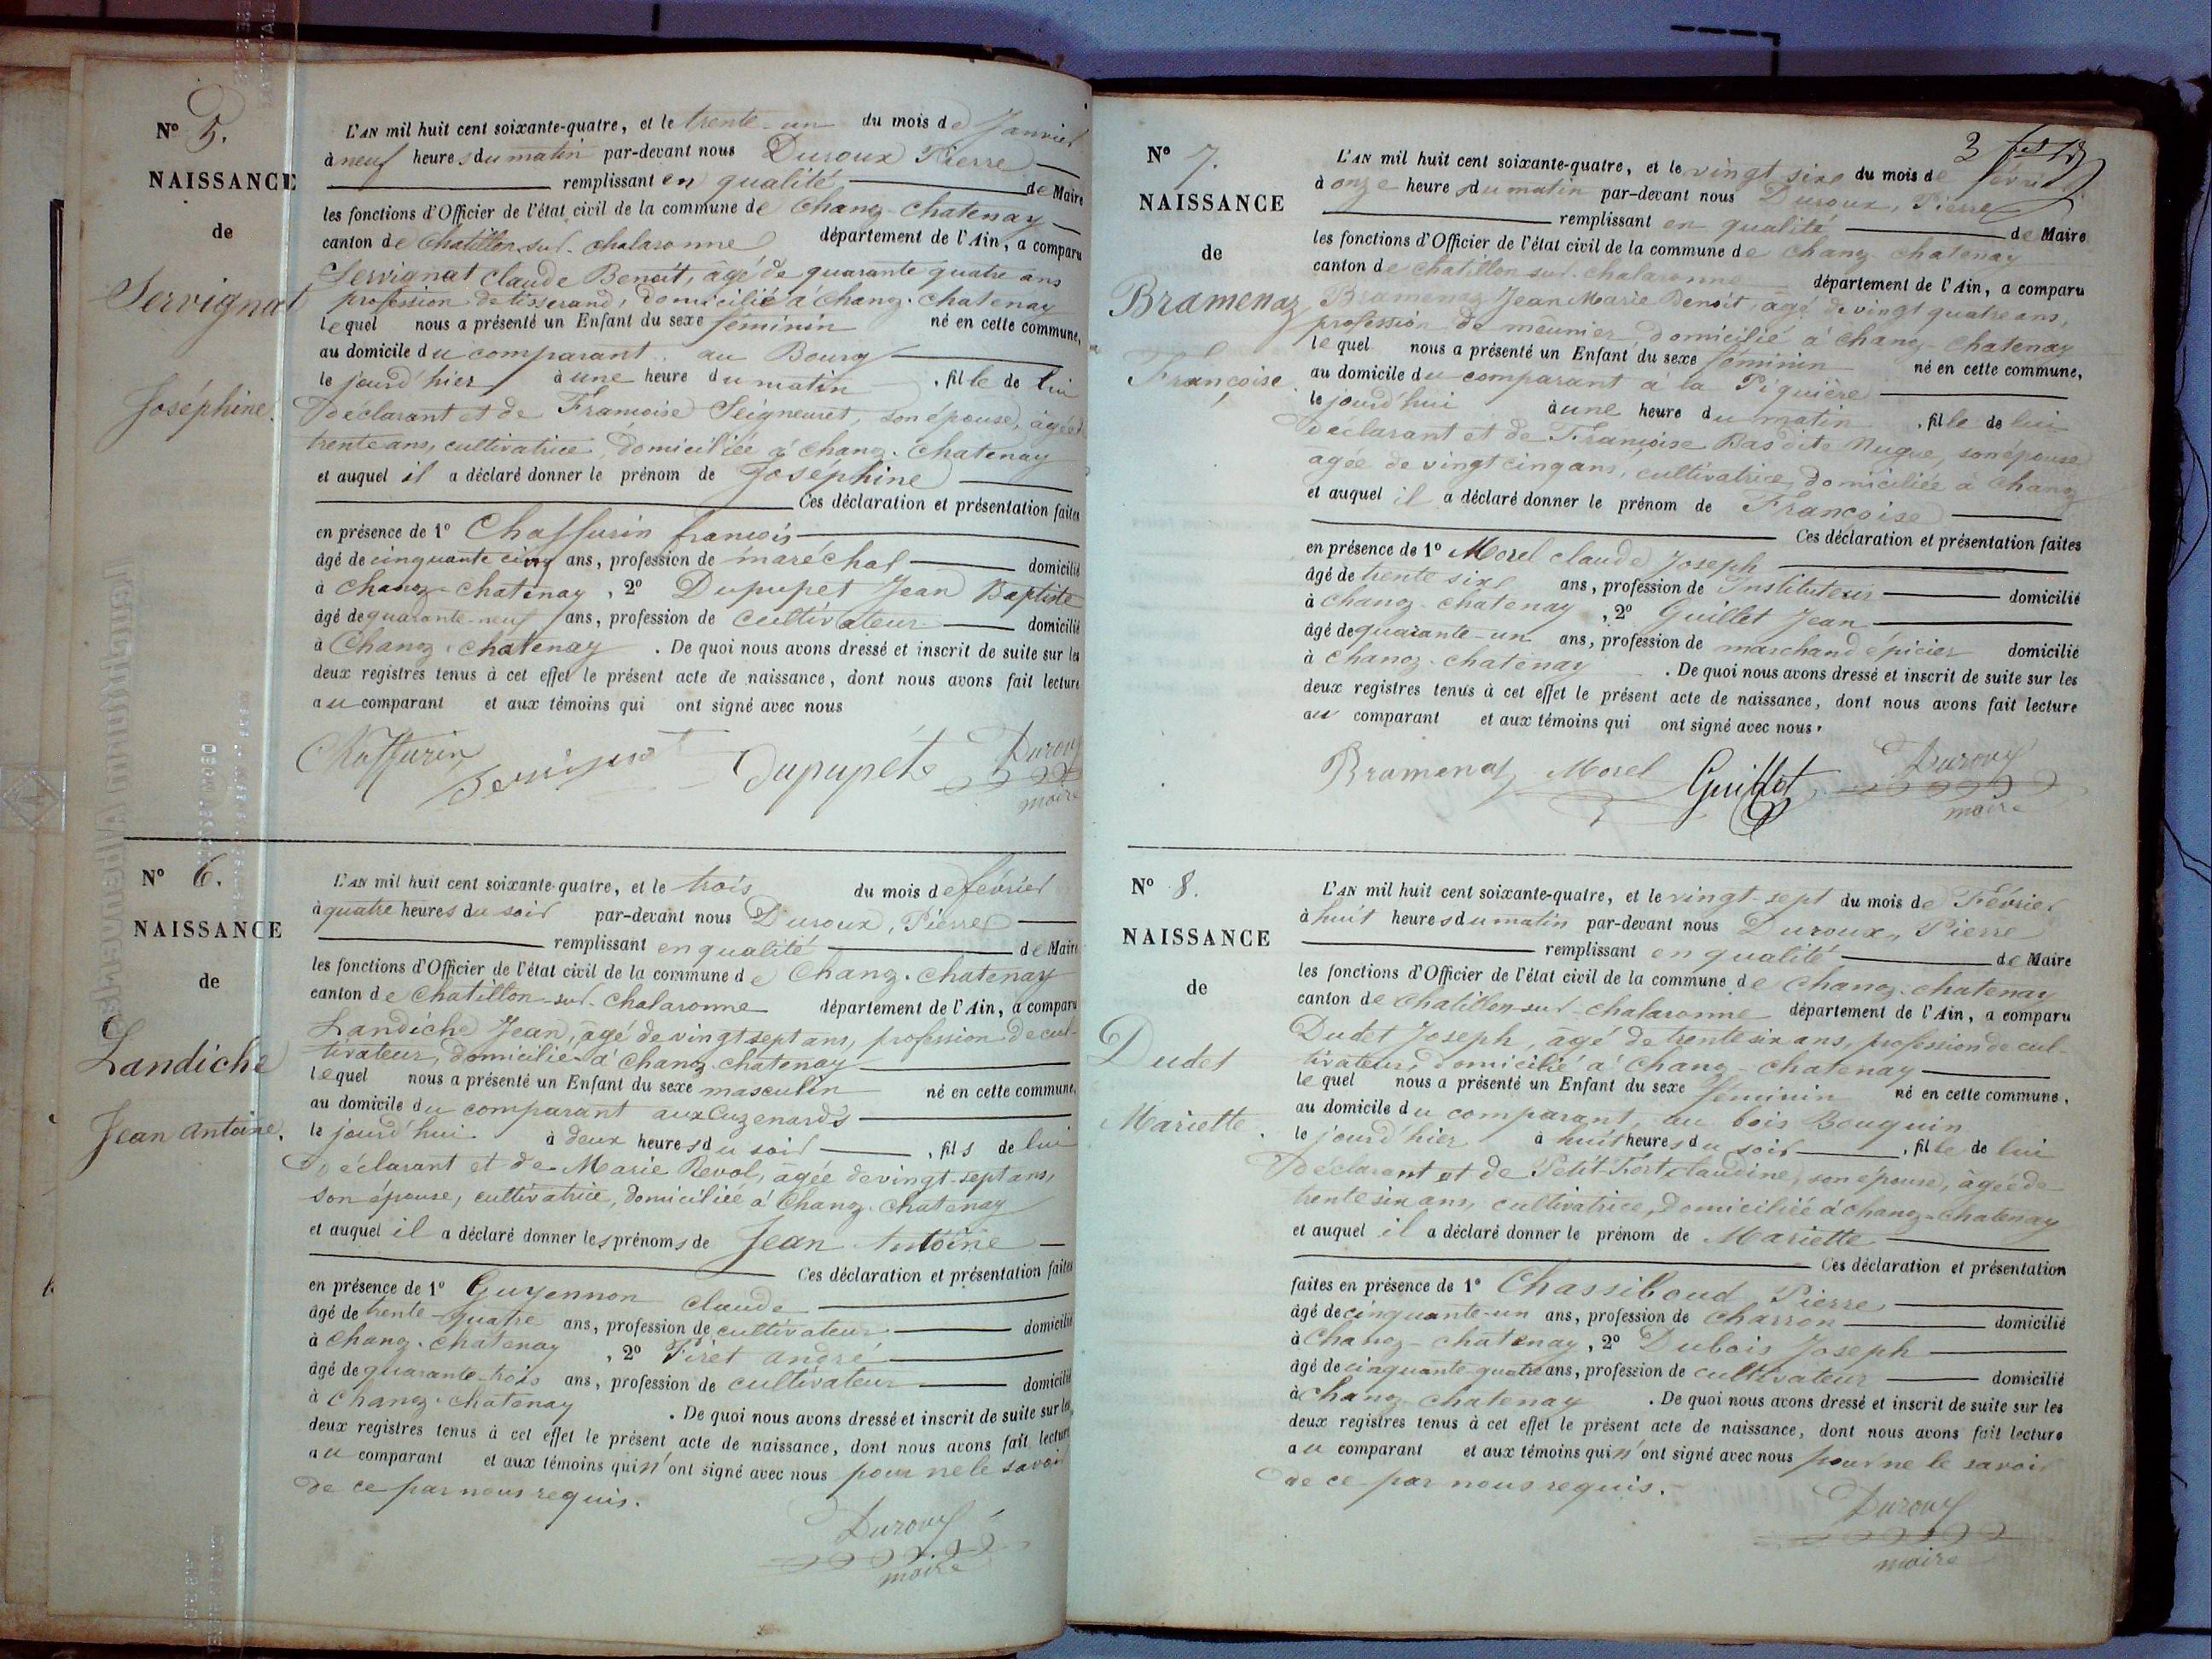 N° 5.
NAISSANCE
de
Servignat
Joséphine.
L'AN mil huit cent soixante-quatre, et le trente-un du mois de Janvier
à neuf heures du matin par-devant nous Duroux Pierre
remplissant en qualité de Maire
les fonctions d'Officier de l'état civil de la commune de Chanoz-Chatenay
canton de Chatillon-sur-chalaronne département de l'Ain, a comparu
Servignat Claude Benoit, âgé de quarante quatre ans
profession de tisserand, domicilié à Chanoz-Chatenay
lequel nous a présenté un Enfant du sexe féminin né en cette commune,
au domicile du comparant au Bourg
le jourd'hier à une heure du matin, fille de lui
Déclarant et de Francoise Seigneuret, son épouse, âgée de
trente ans, cultivatrice, domiciliée à Chanoz-Chatenay
et auquel il a déclaré donner le prénom de Joséphine
Ces déclaration et présentation faites
en présence de 1° Chaffurin francois
âgé de cinquante cinq ans, profession de maréchal domicilié
à Chanoz-Chatenay, 2° Dupupet Jean Baptiste
âgé de quarante-neuf ans, profession de cultivateur domicilié
à Chanoz-Chatenay. De quoi nous avons dressé et inscrit de suite sur les
deux registres tenus à cet effet le présent acte de naissance, dont nous avons fait lecture
au comparant et aux témoins qui ont signé avec nous
Chaffurin Servignat Dupupet Duroux
maire
N° 6.
NAISSANCE
de
Landiche
Jean Antoine.
L'AN mil huit cent soixante-quatre, et le trois du mois de février
à quatre heures du soir par-devant nous Duroux, Pierre
remplissant en qualité de Maire
les fonctions d'Officier de l'état civil de la commune de Chanoz-Chatenay
canton de Chatillon-sur-Chalaronne département de l'Ain, a comparu
Landiche Jean, âgé de vingt sept ans, profession de cul-
tivateur, domicilié à Chanoz-chatenay
lequel nous a présenté un Enfant du sexe masculin né en cette commune,
au domicile du comparant aux Cuzenards
le jourd'hui à deux heures du soir, fils de lui
Déclarant et de Marie Revol, âgée de vingt-sept ans,
son épouse, cultivatrice, domiciliée à Chanoz-Chatenay
et auquel il a déclaré donner les prénoms de Jean Antoine
Ces déclaration et présentation faites
en présence de 1° Guyennon Claude
âgé de trente-quatre ans, profession de cultivateur domicilié
à Chanoz-Chatenay, 2° Firet andré
âgé de quarante-trois ans, profession de cultivateur domicilié
à Chanoz-chatenay. De quoi nous avons dressé et inscrit de suite sur les
deux registres tenus à cet effet le présent acte de naissance, dont nous avons fait lecture
au comparant et aux témoins qui n'ont signé avec nous pour ne le savoir
de ce par nous requis.
Duroux
maire
3
N° 7.
NAISSANCE
de
Bramenaz
Françoise.
L'AN mil huit cent soixante-quatre, et le vingt six du mois de février
à onze heures du matin par-devant nous Duroux, Pierre
remplissant en qualité de Maire
les fonctions d'Officier de l'état civil de la commune de Chanoz-chatenay
canton de Chatillon-sur-chalaronne département de l'Ain, a comparu
Bramenaz Jean Marie Benoit, âgé de vingt quatre ans,
profession de meunier, domicilié à Chanoz-Chatenay
lequel nous a présenté un Enfant du sexe féminin né en cette commune,
au domicile du comparant à la Piquière
le jourd'hui à une heure du matin, fille de lui
Déclarant et de Françoise Bas dite Nugue, son épouse
agée de vingt cinq ans, cultivatrice, domiciliée à Chanoz
et auquel il a déclaré donner le prénom de Françoise
Ces déclaration et présentation faites
en présence de 1° Morel claude Joseph
âgé de trente six ans, profession de Instituteur domicilié
à Chanoz-chatenay, 2° Guillet Jean
âgé de quarante-un ans, profession de marchand épicier domicilié
à Chanoz-Chatenay. De quoi nous avons dressé et inscrit de suite sur les
deux registres tenus à cet effet le présent acte de naissance, dont nous avons fait lecture
au comparant et aux témoins qui ont signé avec nous.
Bramenaz Morel Guillet Duroux
maire
N° 8.
NAISSANCE
de
Dudet
Mariette.
L'AN mil huit cent soixante-quatre, et le vingt-sept du mois de Février
à huit heures du matin par-devant nous Duroux, Pierre
remplissant en qualité de Maire
les fonctions d'Officier de l'état civil de la commune de Chanoz-chatenay
canton de Chatillon-sur-chalaronne département de l'Ain, a comparu
Dudet Joseph, âgé de trente six ans, profession de cul-
tivateur, domicilié à Chanoz-Chatenay
lequel nous a présenté un Enfant du sexe féminin né en cette commune,
au domicile du comparant, au bois Bouquin
le jourd'hier à huit heures du soir, fille de lui
Déclarant et de Petit Fort claudine, son épouse, âgée de
trente six ans, cultivatrice, domiciliée à Chanoz-Chatenay
et auquel il a déclaré donner le prénom de Mariette
Ces déclaration et présentation
faites en présence de 1° Chassiboud Pierre
âgé de cinquante-un ans, profession de Charron domicilié
à Chanoz-chatenay, 2° Dubois Joseph
âgé de cinquante quatre ans, profession de cultivateur domicilié
à Chanoz-chatenay. De quoi nous avons dressé et inscrit de suite sur les
deux registres tenus à cet effet le présent acte de naissance, dont nous avons fait lecture
au comparant et aux témoins qui n'ont signé avec nous pour ne le savoir
de ce par nous requis.
Duroux
maire